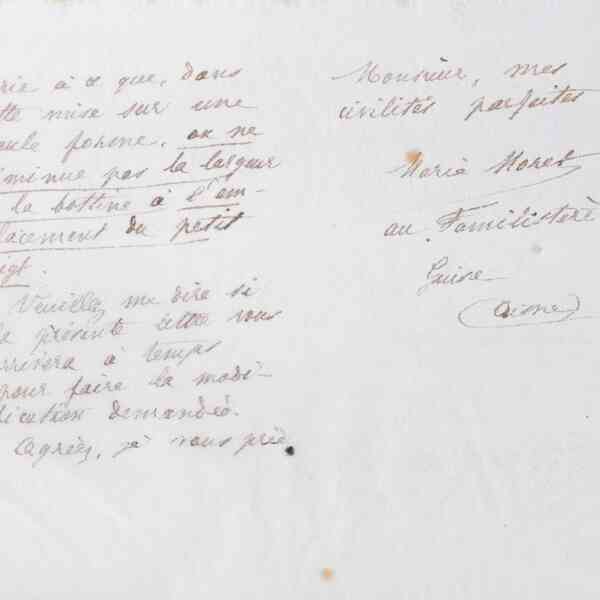 rie à ce que, dans
tte mise sur une
eule forme, on ne
iminue pas la largeur
la bottine à l'em-
lacement du petit
igt.
Veuillez me dire si
la présente lettre vous
rrivera à temps
pour faire la modi-
fication demandée.
Agréez, je vous prie
Monsieur, mes
civilités parfaites
Marie Moret
au Familistère
Guise
(Aisne)